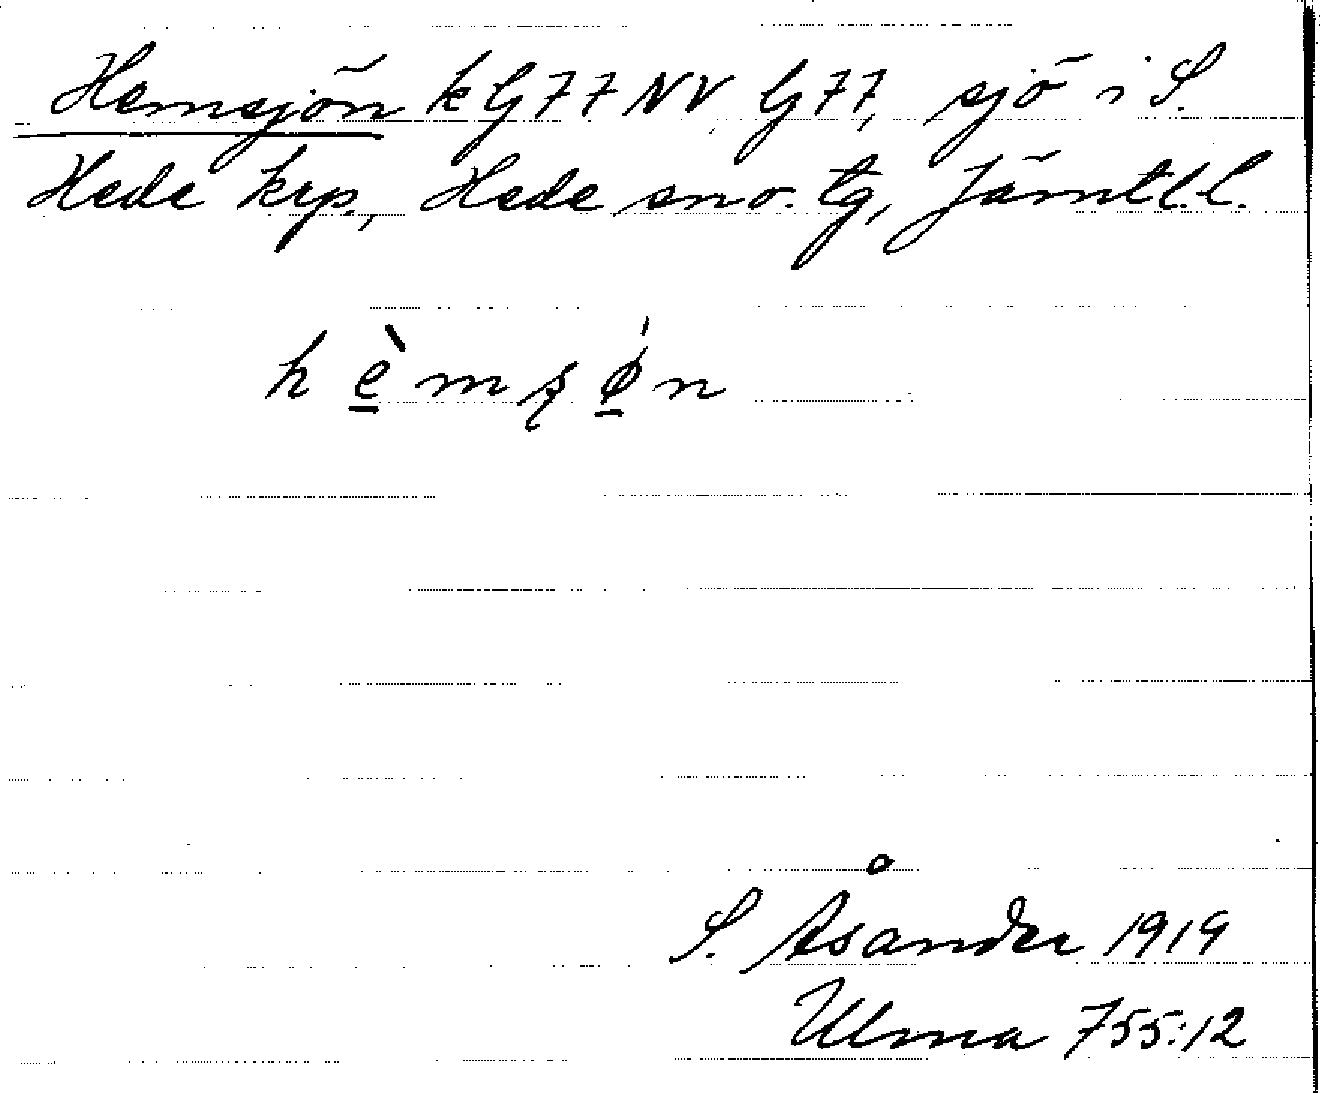 Hemsjön k G77 NV G77, sjö i S.
Hede krp., Hede sno. tg, Jämtl. l.
hè̲mʂǿ̲n
S. Åsander 1919
Ulma 755:12